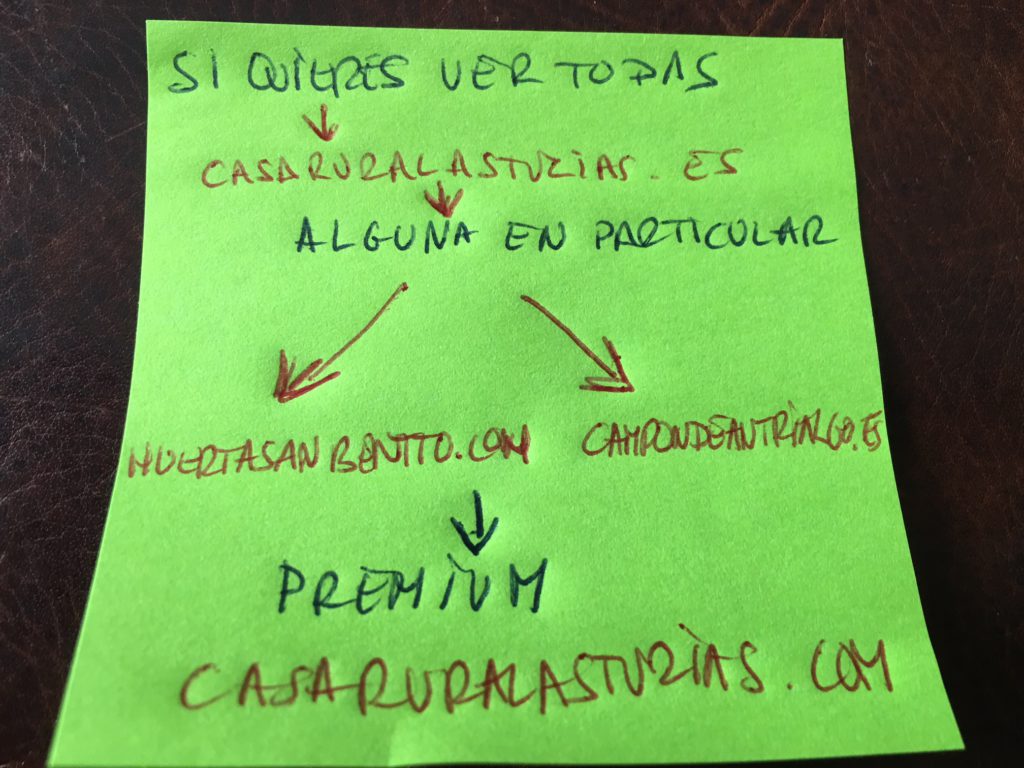 SI QUIERES VER TODAS
CASARURALASTURIAS.ES
ALGUNA EN PARTICULAR
HUERTASANBENITO.COM CAMPONDEANTRIALGO.ES
PREMIUM
CASARURALASTURIAS.COM